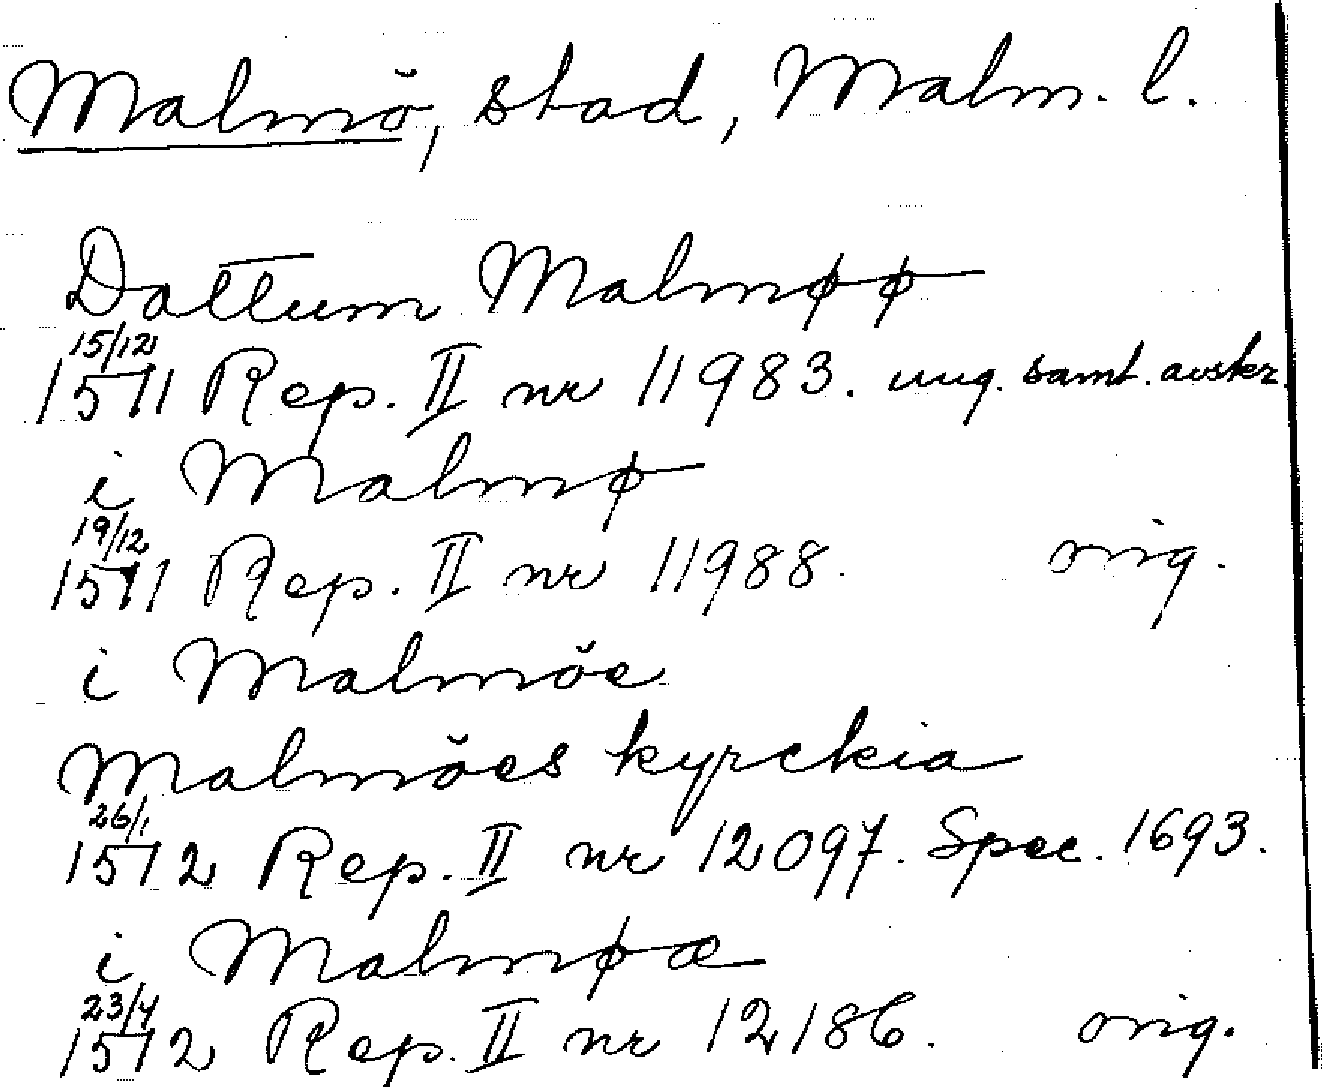 Malmö, stad, Malm. l.
Dattum Malmøø
15/12
1511 Rep. II nr 11983. ung. samt. avskr.
i Malmø
19/12
1511 Rep. II nr 11988. orig.
i Malmöe
Malmöes kyrckia
26/1
1512 Rep. II nr 12097. Spec. 1693.
i Malmøæ
23/4
1512 Rep. II nr 12186. orig.